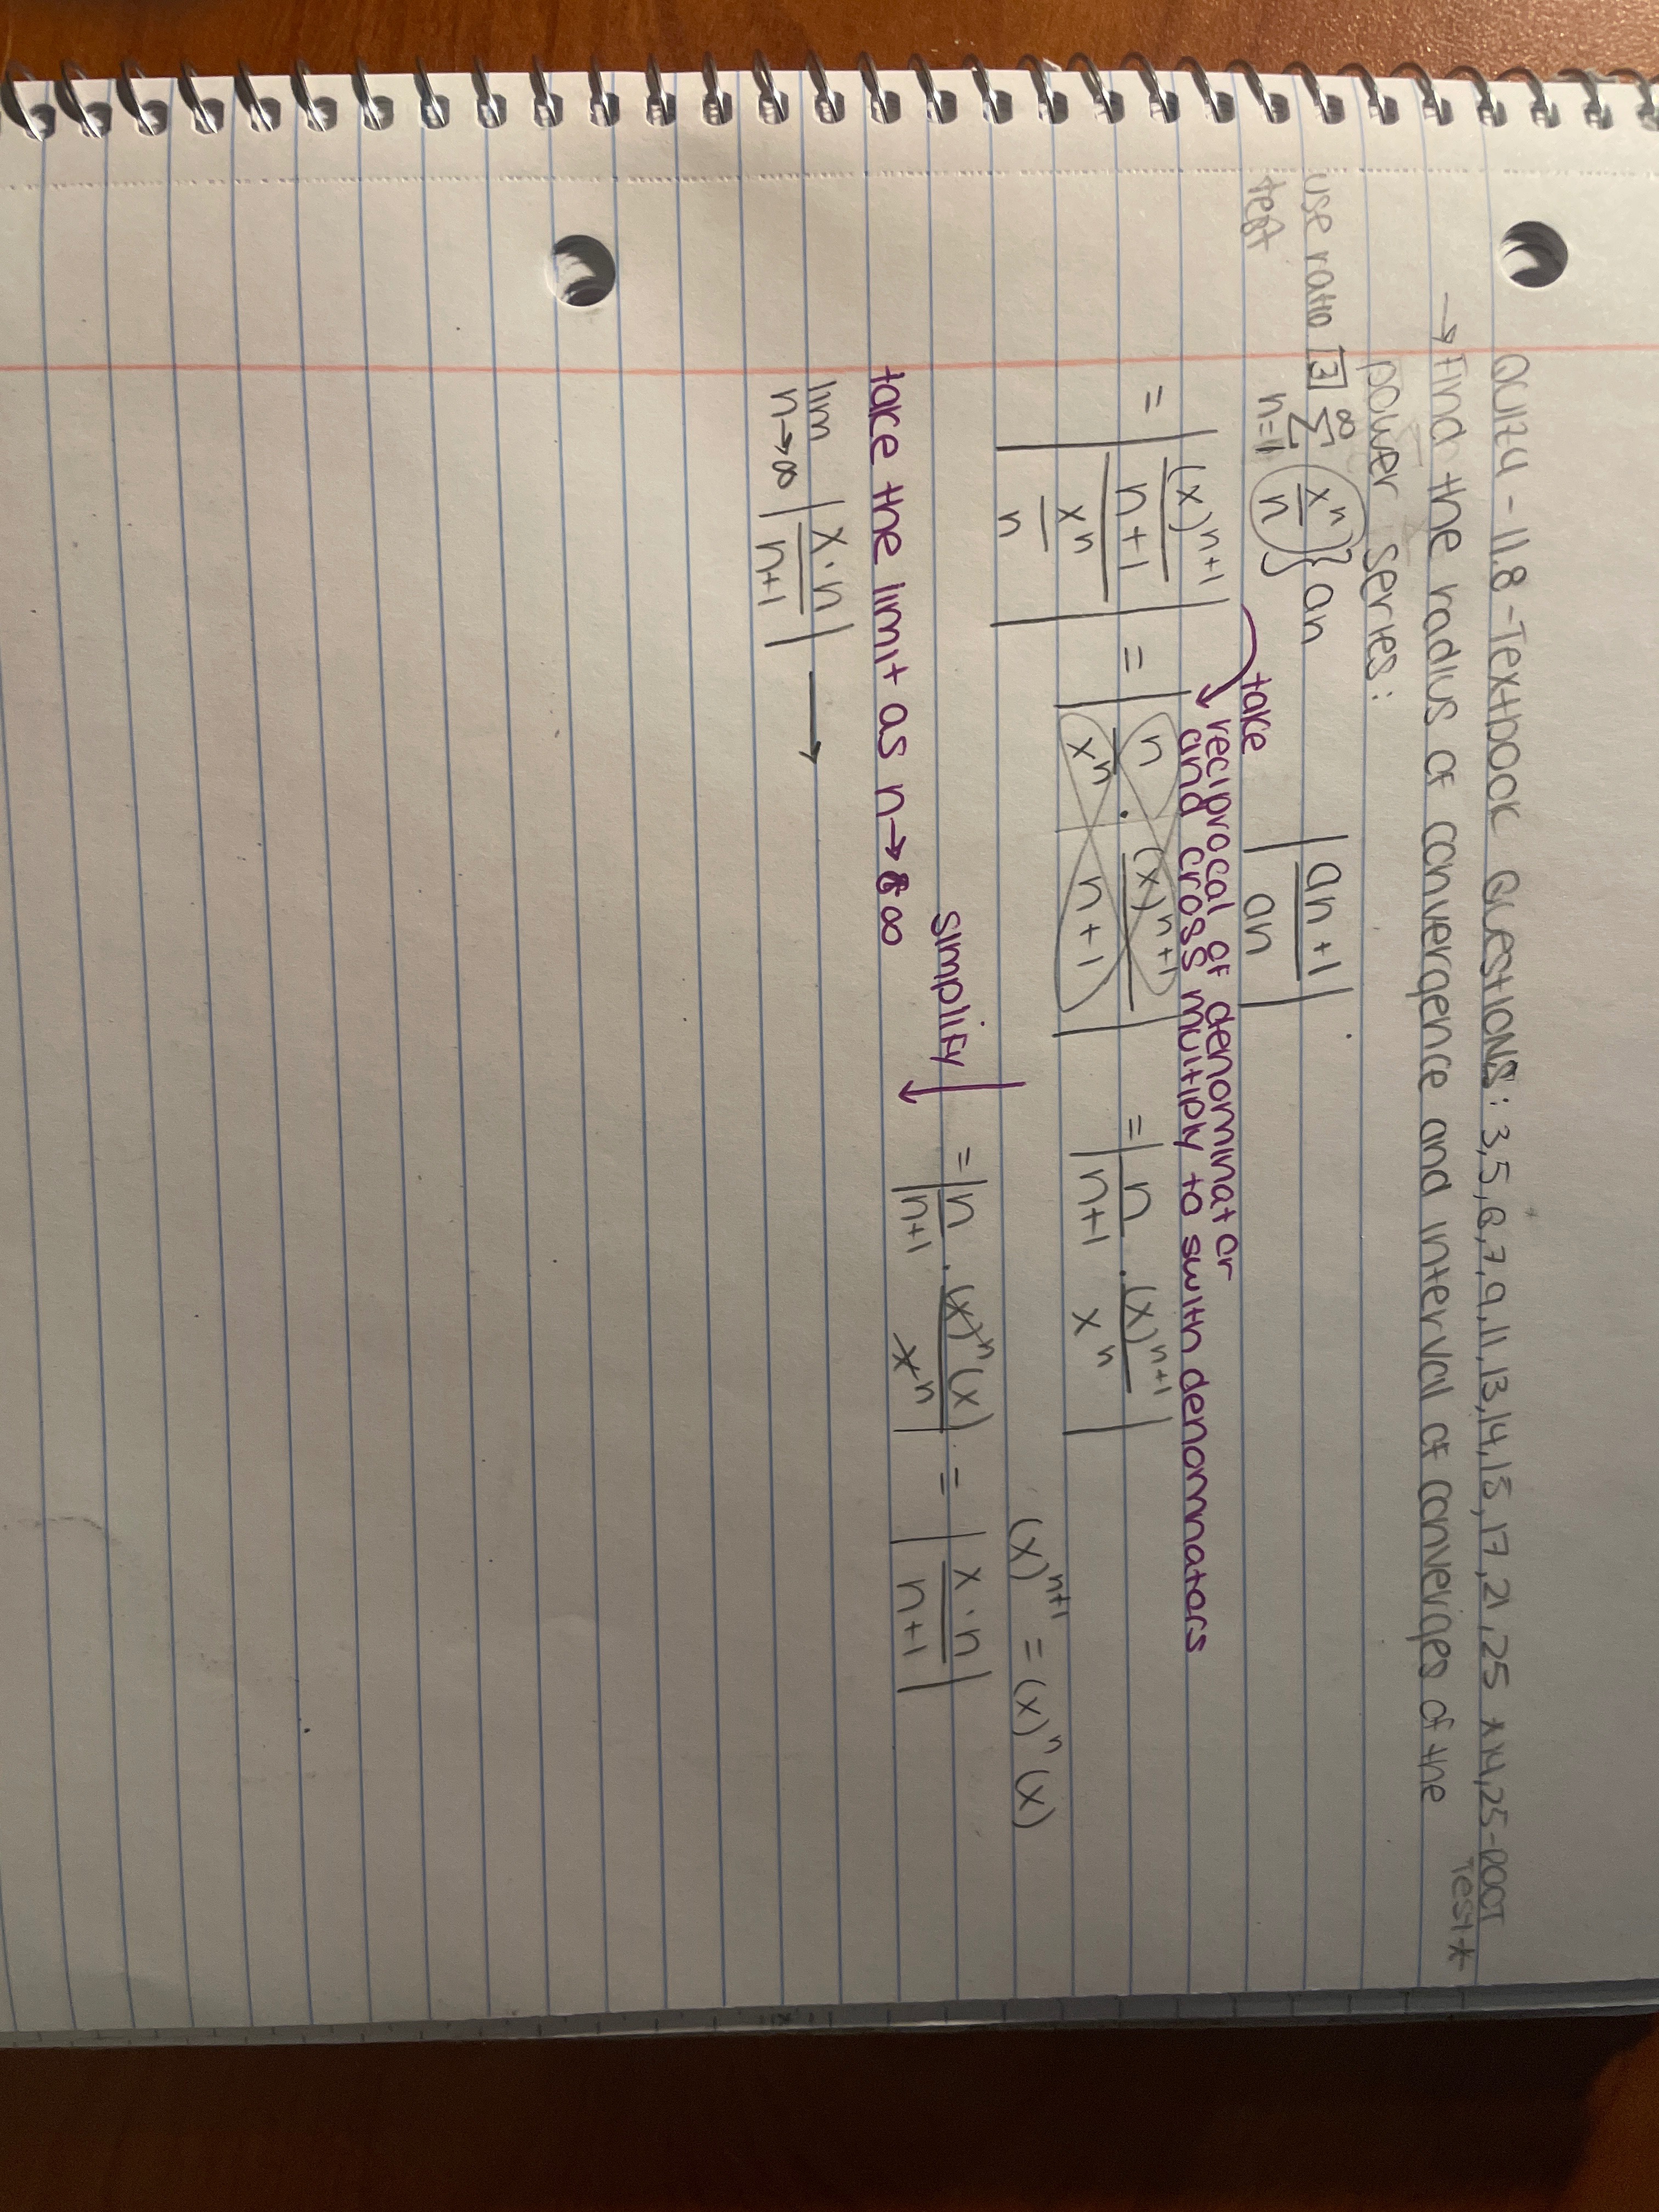 Quiz 4 - 11.8 - Textbook Questions: 3,5,6,7,9,11,13,14,15,17,21,25 *14,25-ROOT Test*
→ Find the radius of convergence and interval of converges of the
power series:
use ratio test
[3] ∞ Σ n=1 x^n / n } an
| an+1 / an |
take reciprocal of denominator
and cross multiply to switn denomnators
= | ((x)^n+1 / n+1) / (x^n / n) | = | n / x^n · (x)^n+1 / n+1 | = | n / n+1 · (x)^n+1 / x^n |
(x)^n+1 = (x)^n (x)
simplify
= | n / n+1 · (x)^n (x) / x^n | = | x · n / n+1 |
take the limit as n→ ∞
lim n→∞ | x · n / n+1 | →